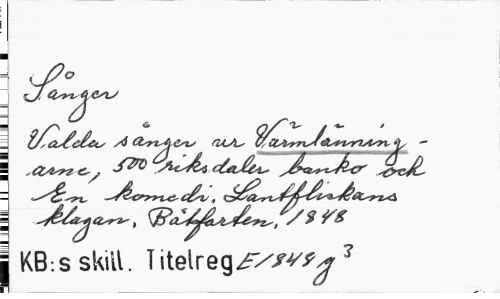 Sånger
Valda sånger ur Värmlänning-
arne, 500 riksdaler banko och
En komedi. Lantflickans
klagan. Båtfarten. 1848
KB:s skill. Titelreg E1848 g³